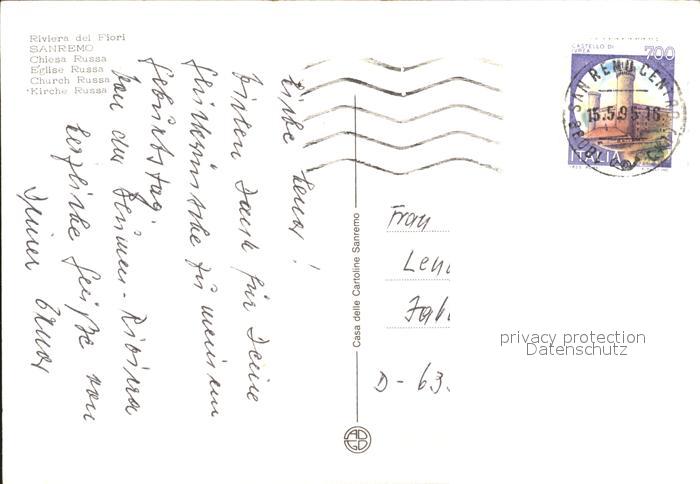 Riviera dei Fiori
SANREMO
Chiesa Russa
Eglise Russa
Church Russa
Kirche Russa
Liebe Lena!
Vielen Dank für Deine
Glückwünsche zu meinem
Geburtstag.
Von der Blumen-Riviera
herzliche Grüße von
Deiner Erna
Casa delle Cartoline Sanremo
CASTELLO DI
IVREA
700
ITALIA
SAN REMO CENTRO
15.5.95-16
Frau
Len
D-63.
privacy protection
Datenschutz